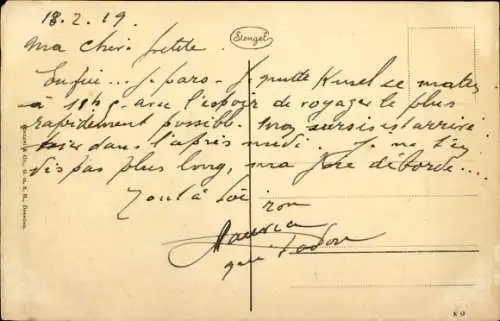 18.2.19.
Stengel
Ma chère petite
Enfin... Je pars. Je quitte Kusel ce matin
à 11h avec l'espoir de voyager le plus
rapidement possible. Mon sursis est arrivé
hier dans l'après midi. Je ne t'en
dis pas plus long, ma joie déborde....
Tout à toi
ton
Maurice
qui t'adore
Stengel & Co., G. m. b. H., Dresden.